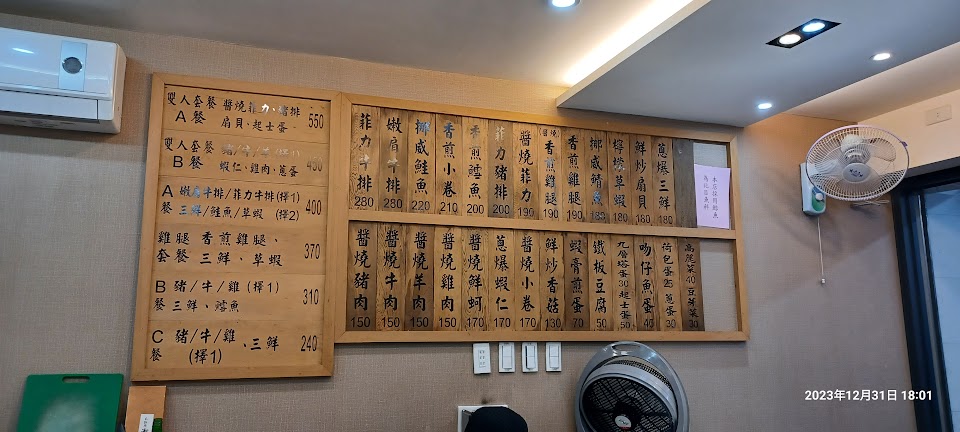 雙人套餐 醬燒菲力、豬排
A餐 扇貝、起士蛋 550
雙人套餐 豬/牛/羊(擇1)
B餐 蝦仁、雞肉、蔥蛋 430
A 嫩肩牛排/菲力牛排(擇1)
餐 三鮮/鮭魚/草蝦 (擇2) 400
雞腿 香煎雞腿、
套餐 三鮮、草蝦 370
B 豬/牛/雞(擇1)
餐 三鮮、鱈魚 310
C 豬/牛/雞
餐 (擇1)、三鮮 240
菲力牛排 280
嫩肩牛排 280
挪威鮭魚 220
香煎小卷 210
香煎鱈魚 200
菲力豬排 200
醬燒菲力 199
醬燒香煎雞腿 190
香煎雞腿 190
挪威鯖魚 185
檸檬草蝦 180
鮮炒扇貝 180
蔥爆三鮮 180
本店採用鱈魚
為比目魚科
醬燒豬肉 150
醬燒牛肉 150
醬燒羊肉 150
醬燒雞肉 150
醬燒鮮蚵 170
蔥爆蝦仁 170
醬燒小卷 170
鮮炒香菇 130
蝦膏煎蛋 70
鐵板豆腐 50
九層塔蛋 30 起士蛋 50
吻仔魚蛋 40
荷包蛋 25 蔥蛋 30
高麗菜 40 豆芽菜 30
2023年12月31日 18:01